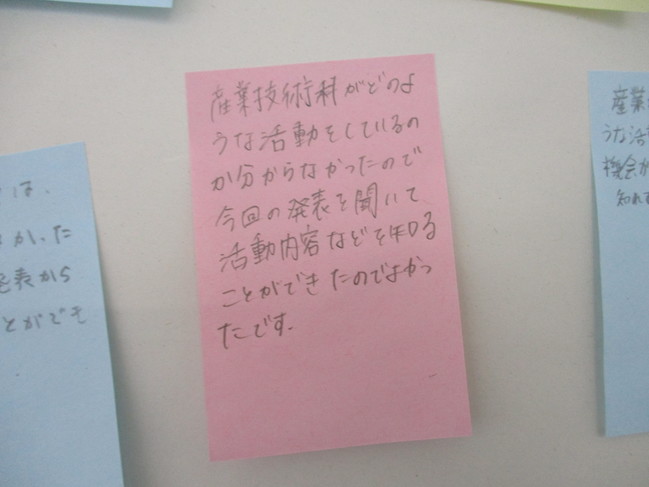 産業技術科がどのよ
うな活動をしているの
か分からなかったので
今回の発表を聞いて
活動内容などを知る
ことができたのでよかっ
たです.
は、
かった
発表から
とができ
産業
うな活
機会が
知れ